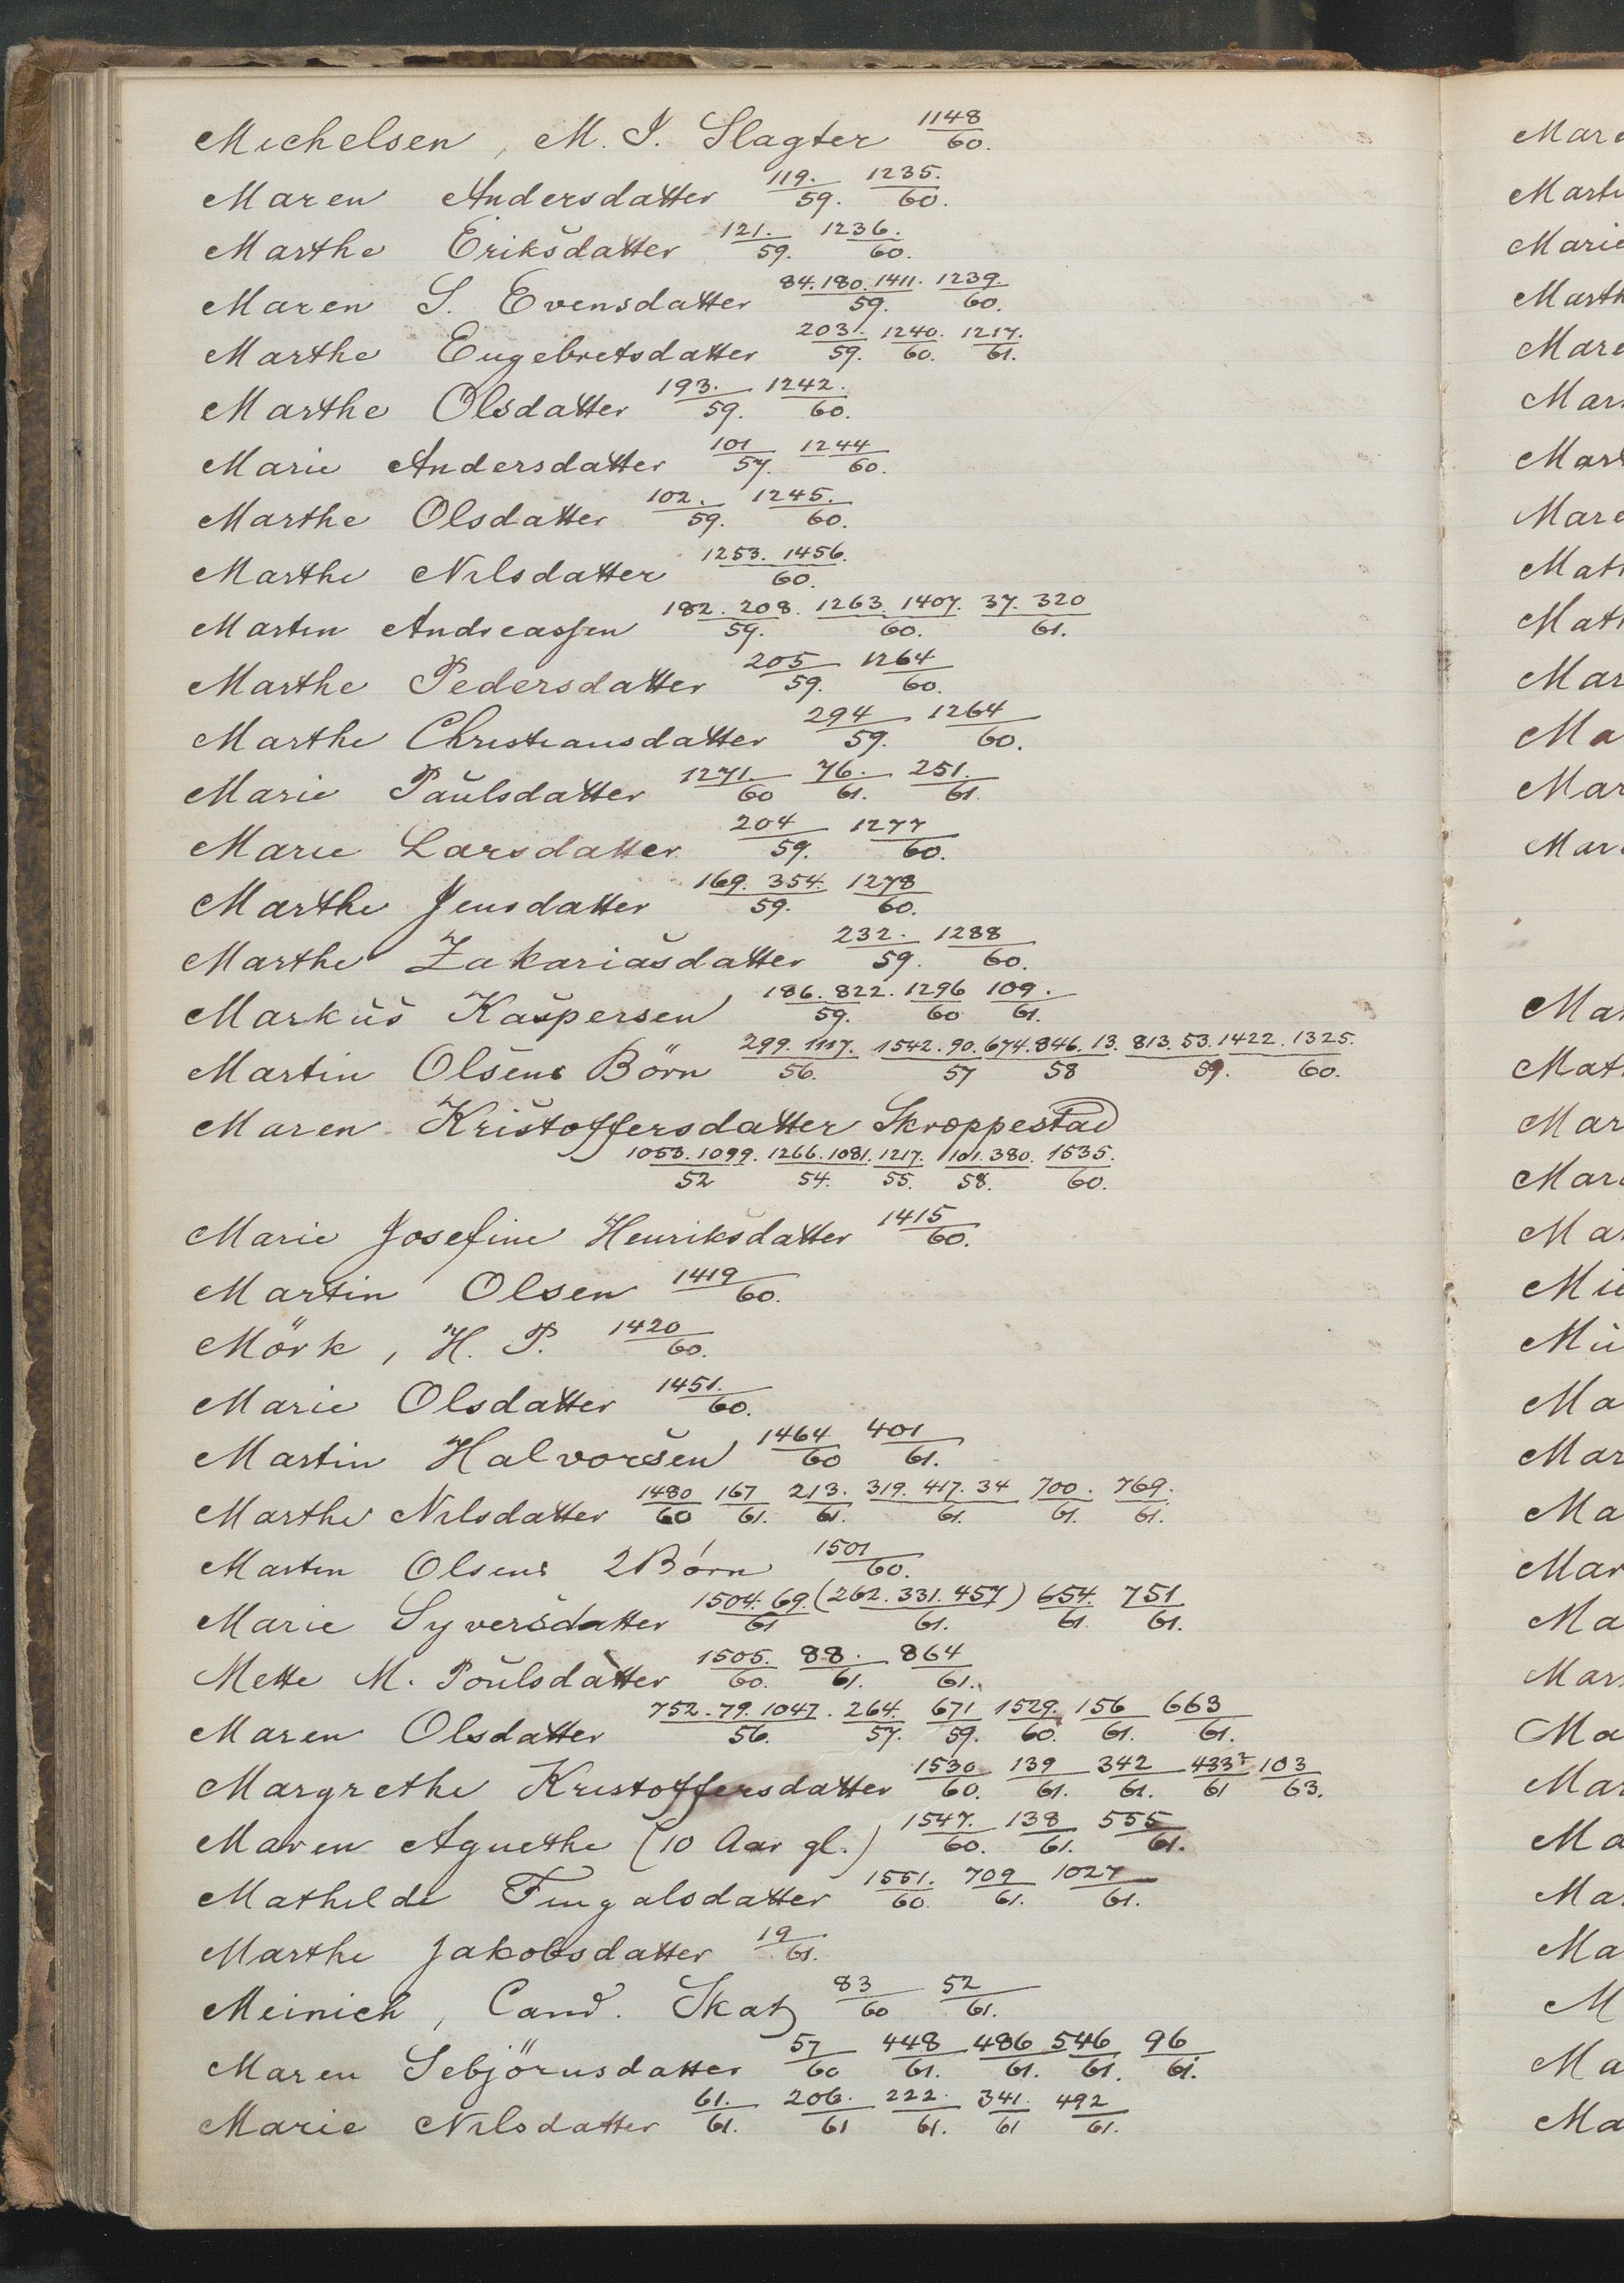 Michelsen, M. I. Slagter 1148/60.
Maren Andersdatter 119./59. 1235./60.
Marthe Eriksdatter 121./59. 1236./60.
Maren S. Evensdatter 84.180.1411./59. 1239./60.
Marthe Engebretsdatter 203./59. 1240./60. 1217./61.
Marthe Olsdatter 193./59. 1242./60.
Marie Andersdatter 101/57. 1244/60.
Marthe Olsdatter 102./59. 1245./60.
Marthe Nilsdatter 1253. 1456./60.
Martin Andreassen 182. 208./59. 1263. 1407./60. 37. 320/61.
Marthe Pedersdatter 205/59. 1264/60.
Marthe Christiansdatter 294/59. 1264/60.
Marie Paulsdatter 1271./60 76./61. 251./61.
Marie Larsdatter 204/59. 1277/60.
Marthe Jensdatter 169. 354./59. 1278/60.
Marthe Zakariasdatter 232./59. 1288/60.
Markus Kaspersen 186. 822./59. 1296/60 109./61.
Martin Olsens Börn 299. 1117./56. 1542. 90./57 674. 846. 13./58 813. 53. 1422./59. 1325./60.
Maren Kristoffersdatter Skroppestad
1053. 1099./52 1266. 1081./54. 1217./55. 101. 380./58. 1535./60.
Marie Josefine Henriksdatter 1415/60.
Martin Olsen 1419/60.
Mörk, H. P. 1420/60.
Marie Olsdatter 1451./60.
Martin Halvorsen 1464/60 401/61.
Marthe Nilsdatter 1480/60 167/61. 213./61. 319. 417. 34/61. 700./61. 769./61.
Martin Olsens 2 Börn 1501/60.
Marie Syversdatter 1504. 69./61 (262. 331. 457)/61. 654./61. 751/61.
Mette M. Poulsdatter 1505./60. 88./61. 864/61.
Maren Olsdatter 752. 79. 1047./56. 264./57. 671/59. 1529./60. 156/61. 663/61.
Margrethe Kristoffersdatter 1530/60. 139/61. 342/61. 433/61 103/63.
Maren Agnethe (10 Aar gl.) 1547./60. 138/61. 555/61.
Mathilde Fingalsdatter 1551./60. 709/61. 1027/61.
Marthe Jakobsdatter 19/61.
Meinich, Cand. Skat 83/60 52/61.
Maren Sebjörnsdatter 57/60 448/61. 486/61. 546/61. 96/61.
Marie Nilsdatter 61./61. 206./61 222./61. 341./61 492/61.